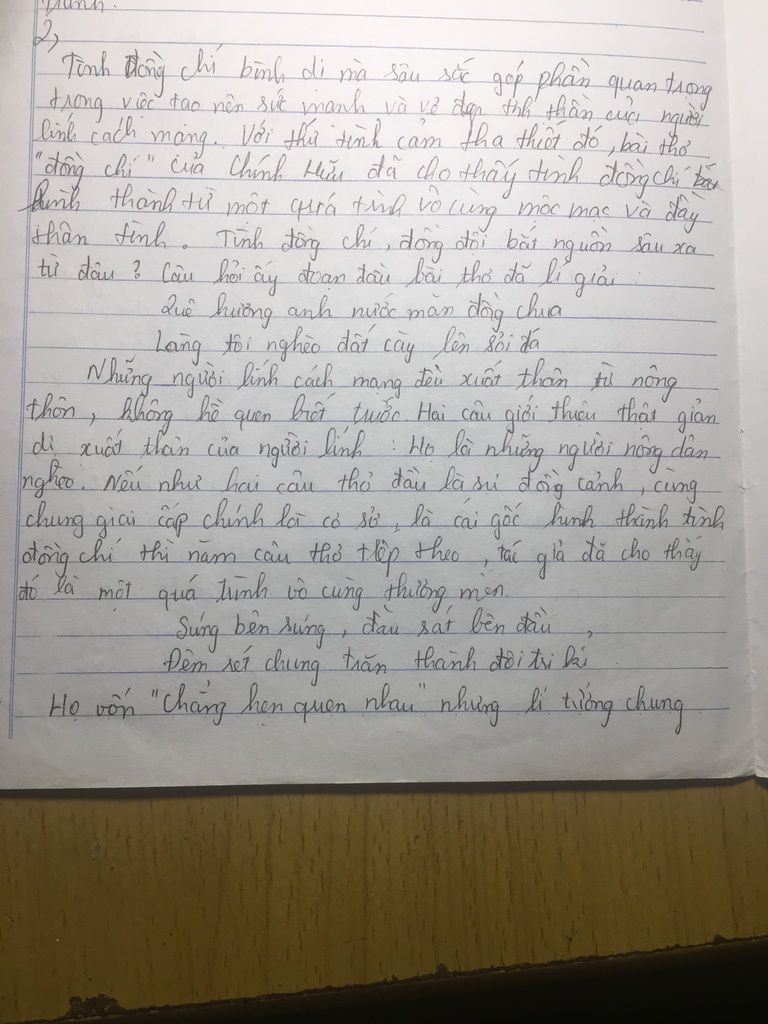 2,
Tình đồng chí bình dị mà sâu sắc góp phần quan trọng
trong việc tạo nên sức mạnh và vẻ đẹp tinh thần của người
lính cách mạng. Với thứ tình cảm tha thiết đó, bài thơ
"đồng chí" của Chính Hữu đã cho thấy tình đồng chí
hình thành từ một quá trình vô cùng mộc mạc và đầy
thân tình. Tình đồng chí, đồng đội bắt nguồn sâu xa
từ đâu? Câu hỏi ấy đoạn đầu bài thơ đã lí giải:
Quê hương anh nước mặn đồng chua
Làng tôi nghèo đất cày lên sỏi đá
Những người lính cách mạng đều xuất thân từ nông
thôn, không hề quen biết trước. Hai câu giới thiệu thật giản
dị xuất thân của người lính: Họ là những người nông dân
nghèo. Nếu như hai câu thơ đầu là sự đồng cảnh, cùng
chung giai cấp chính là cơ sở, là cái gốc hình thành tình
đồng chí thì năm câu thơ tiếp theo, tác giả đã cho thấy
đó là một quá trình vô cùng thương mến.
Súng bên súng, đầu sát bên đầu,
Đêm rét chung trăn thành đôi tri kỉ
Họ vốn "Chẳng hẹn quen nhau" nhưng lí tưởng chung